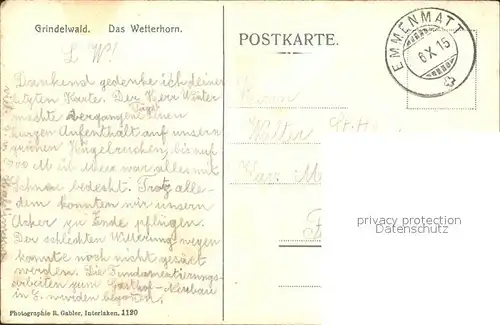 Grindelwald. Das Wetterhorn.
L W!
Dankend gedenke ich deiner
letzten Karte. Der Herr Winter
machte vergangene Tage einen
kurzen Aufenthalt auf unsern
grünen Hügelrücken, bis auf
M ü. Meer war alles mit
Schnee bedeckt. Trotz alle-
dem konnten wir unsern
Acher zu Ende pflügen.
Der schlechten Witterung wegen
konnte noch nicht gesäet
werden. Die Fundamentierungs-
arbeiten zum Gasthof-Neubau
in E. werden begonnen.
Photographie R. Gabler, Interlaken, 1120
POSTKARTE.
EMMENMATT
6 X 15
Herrn
Walter
privacy protection
Datenschutz